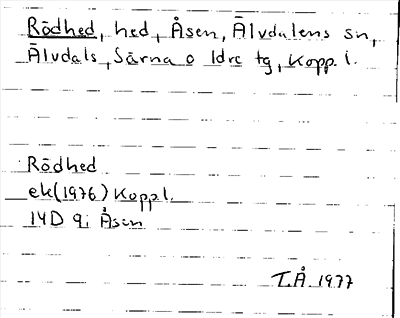 Rödhed, hed, Åsen, Älvdalens sn,
Älvdals, Särna o Idre tg, Kopp. l.
Rödhed
ek (1976) Koppl.
14D 9i Åsen
T.Å. 1977